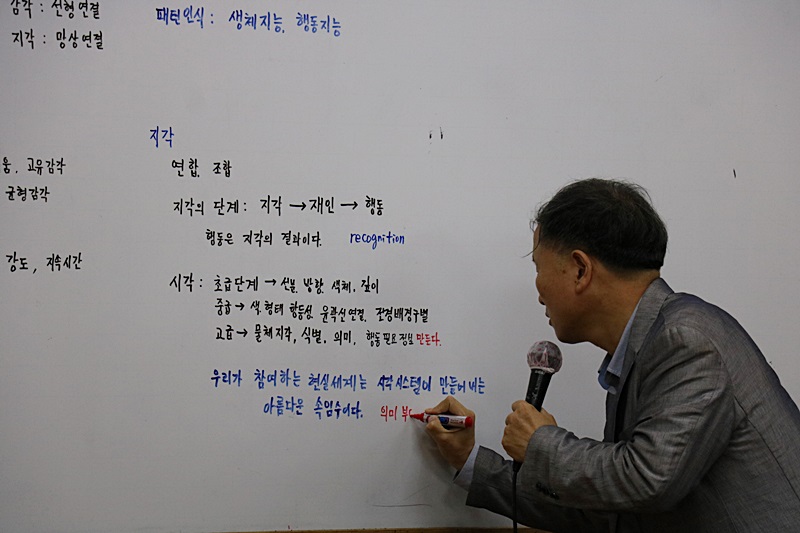 감각 : 선형연결
지각 : 망상연결
패턴인식 : 생체지능, 행동지능
지각
연합, 조합
고유감각
균형감각
지각의 단계 : 지각 → 재인 → 행동
행동은 지각의 결과이다. recognition
강도, 지속시간
시각 : 초급단계 → 선분, 방향, 색체, 깊이
중급 → 색.형태 항등성, 윤곽선연결, 전경배경구별
고급 → 물체지각, 식별, 의미, 행동필요정보 만든다.
우리가 참여하는 현실세계는 시각시스템이 만들어 내는
아름다운 속임수이다. 의미